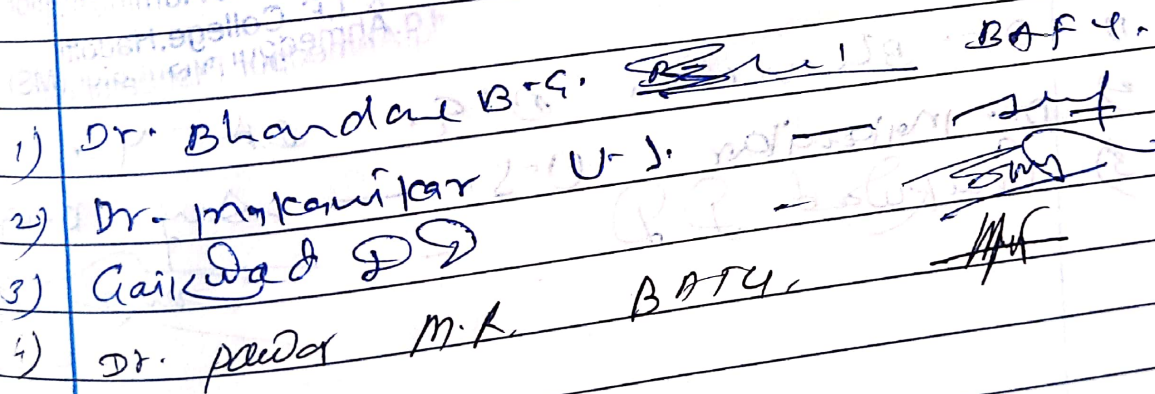 1) Dr. Bhandare B.G. BAFU.
2) Dr. Makanikar U.J. —
3) Gaikwad DD -
4) Dr. Pawar M.R. BATU.